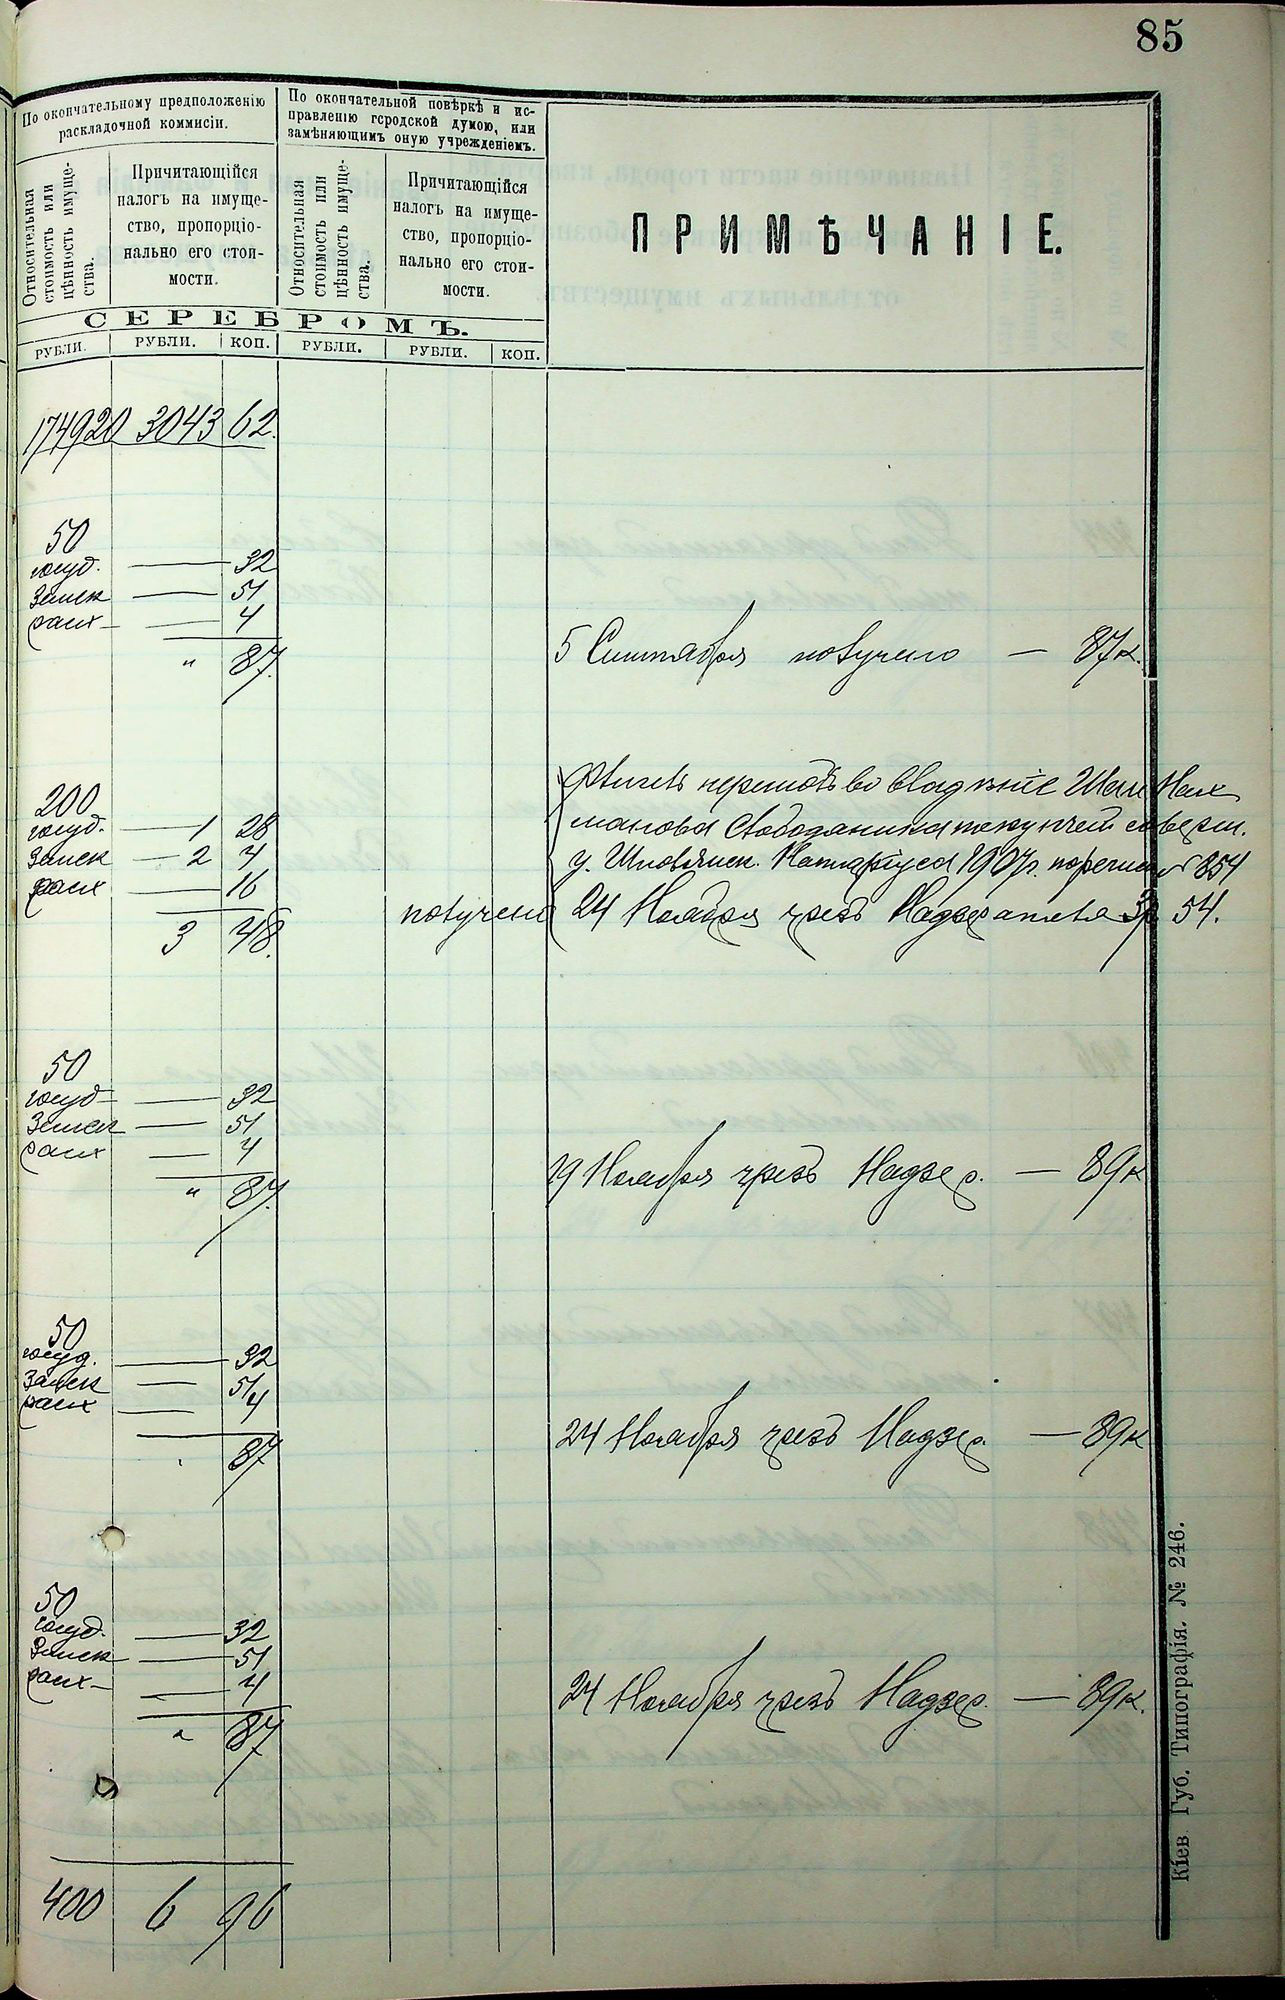 85
По окончательному предположенію
раскладочной коммисіи.
По окончательной повѣркѣ и ис-
правленію городской думою, или
замѣняющимъ оную учрежденіемъ.
Относительная
стоимость или
цѣнность имуще-
ства.
Причитающійся
налогъ на имуще-
ство, пропорціо-
нально его стои-
мости.
Относительная
стоимость или
цѣнность имуще-
ства.
Причитающійся
налогъ на имуще-
ство, пропорціо-
нально его стои-
мости.
ПРИМѢЧАНІЕ.
СЕРЕБРОМЪ.
РУБЛИ. РУБЛИ. КОП. РУБЛИ. РУБЛИ. КОП.
174920 3043 62.
50
госуд. — 32
Земск — 51
расх — 4
" 87.
5 Сентября получено — 87к.
200
госуд. — 1 28
Земск — 2 4
расх — 16
3 48.
перешолъ во владѣніе
1907г.
854
получено 24 Ноября чрезъ Надзерателя 3р 54.
50
госуд — 32
Земск — 51
расх — 4
" 87.
19 Ноября чрезъ Надзер. — 89к
50
госуд. — 32
Земск — 51
расх — 4
87
24 Ноября чрезъ Надзер. — 89к
50
госуд. — 32
Земск — 51
расх — 4
" 87
24 Ноября чрезъ Надзер. — 89к.
400 6 96
Кіев. Губ. Типографія. № 246.